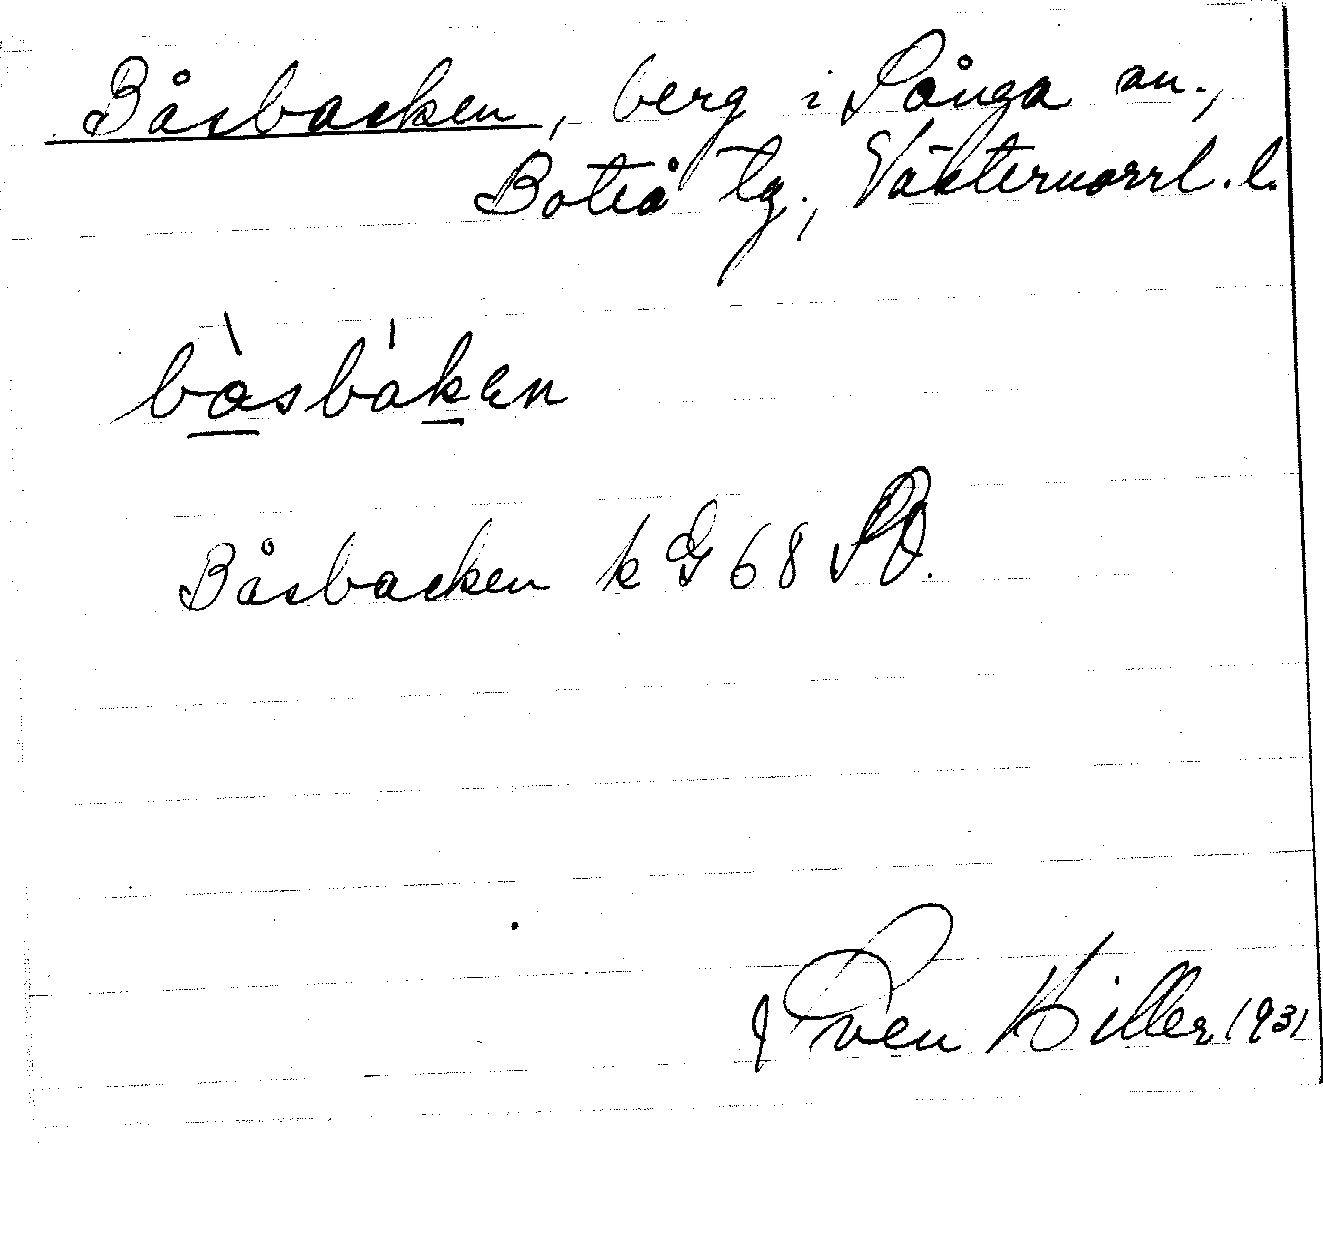 Båsbacken, berg i Sånga sn.,
Boteå tg., Västernorrl. l.
bàsbak̲en
Båsbacken k G 68 SO.
Sven Hiller 1931